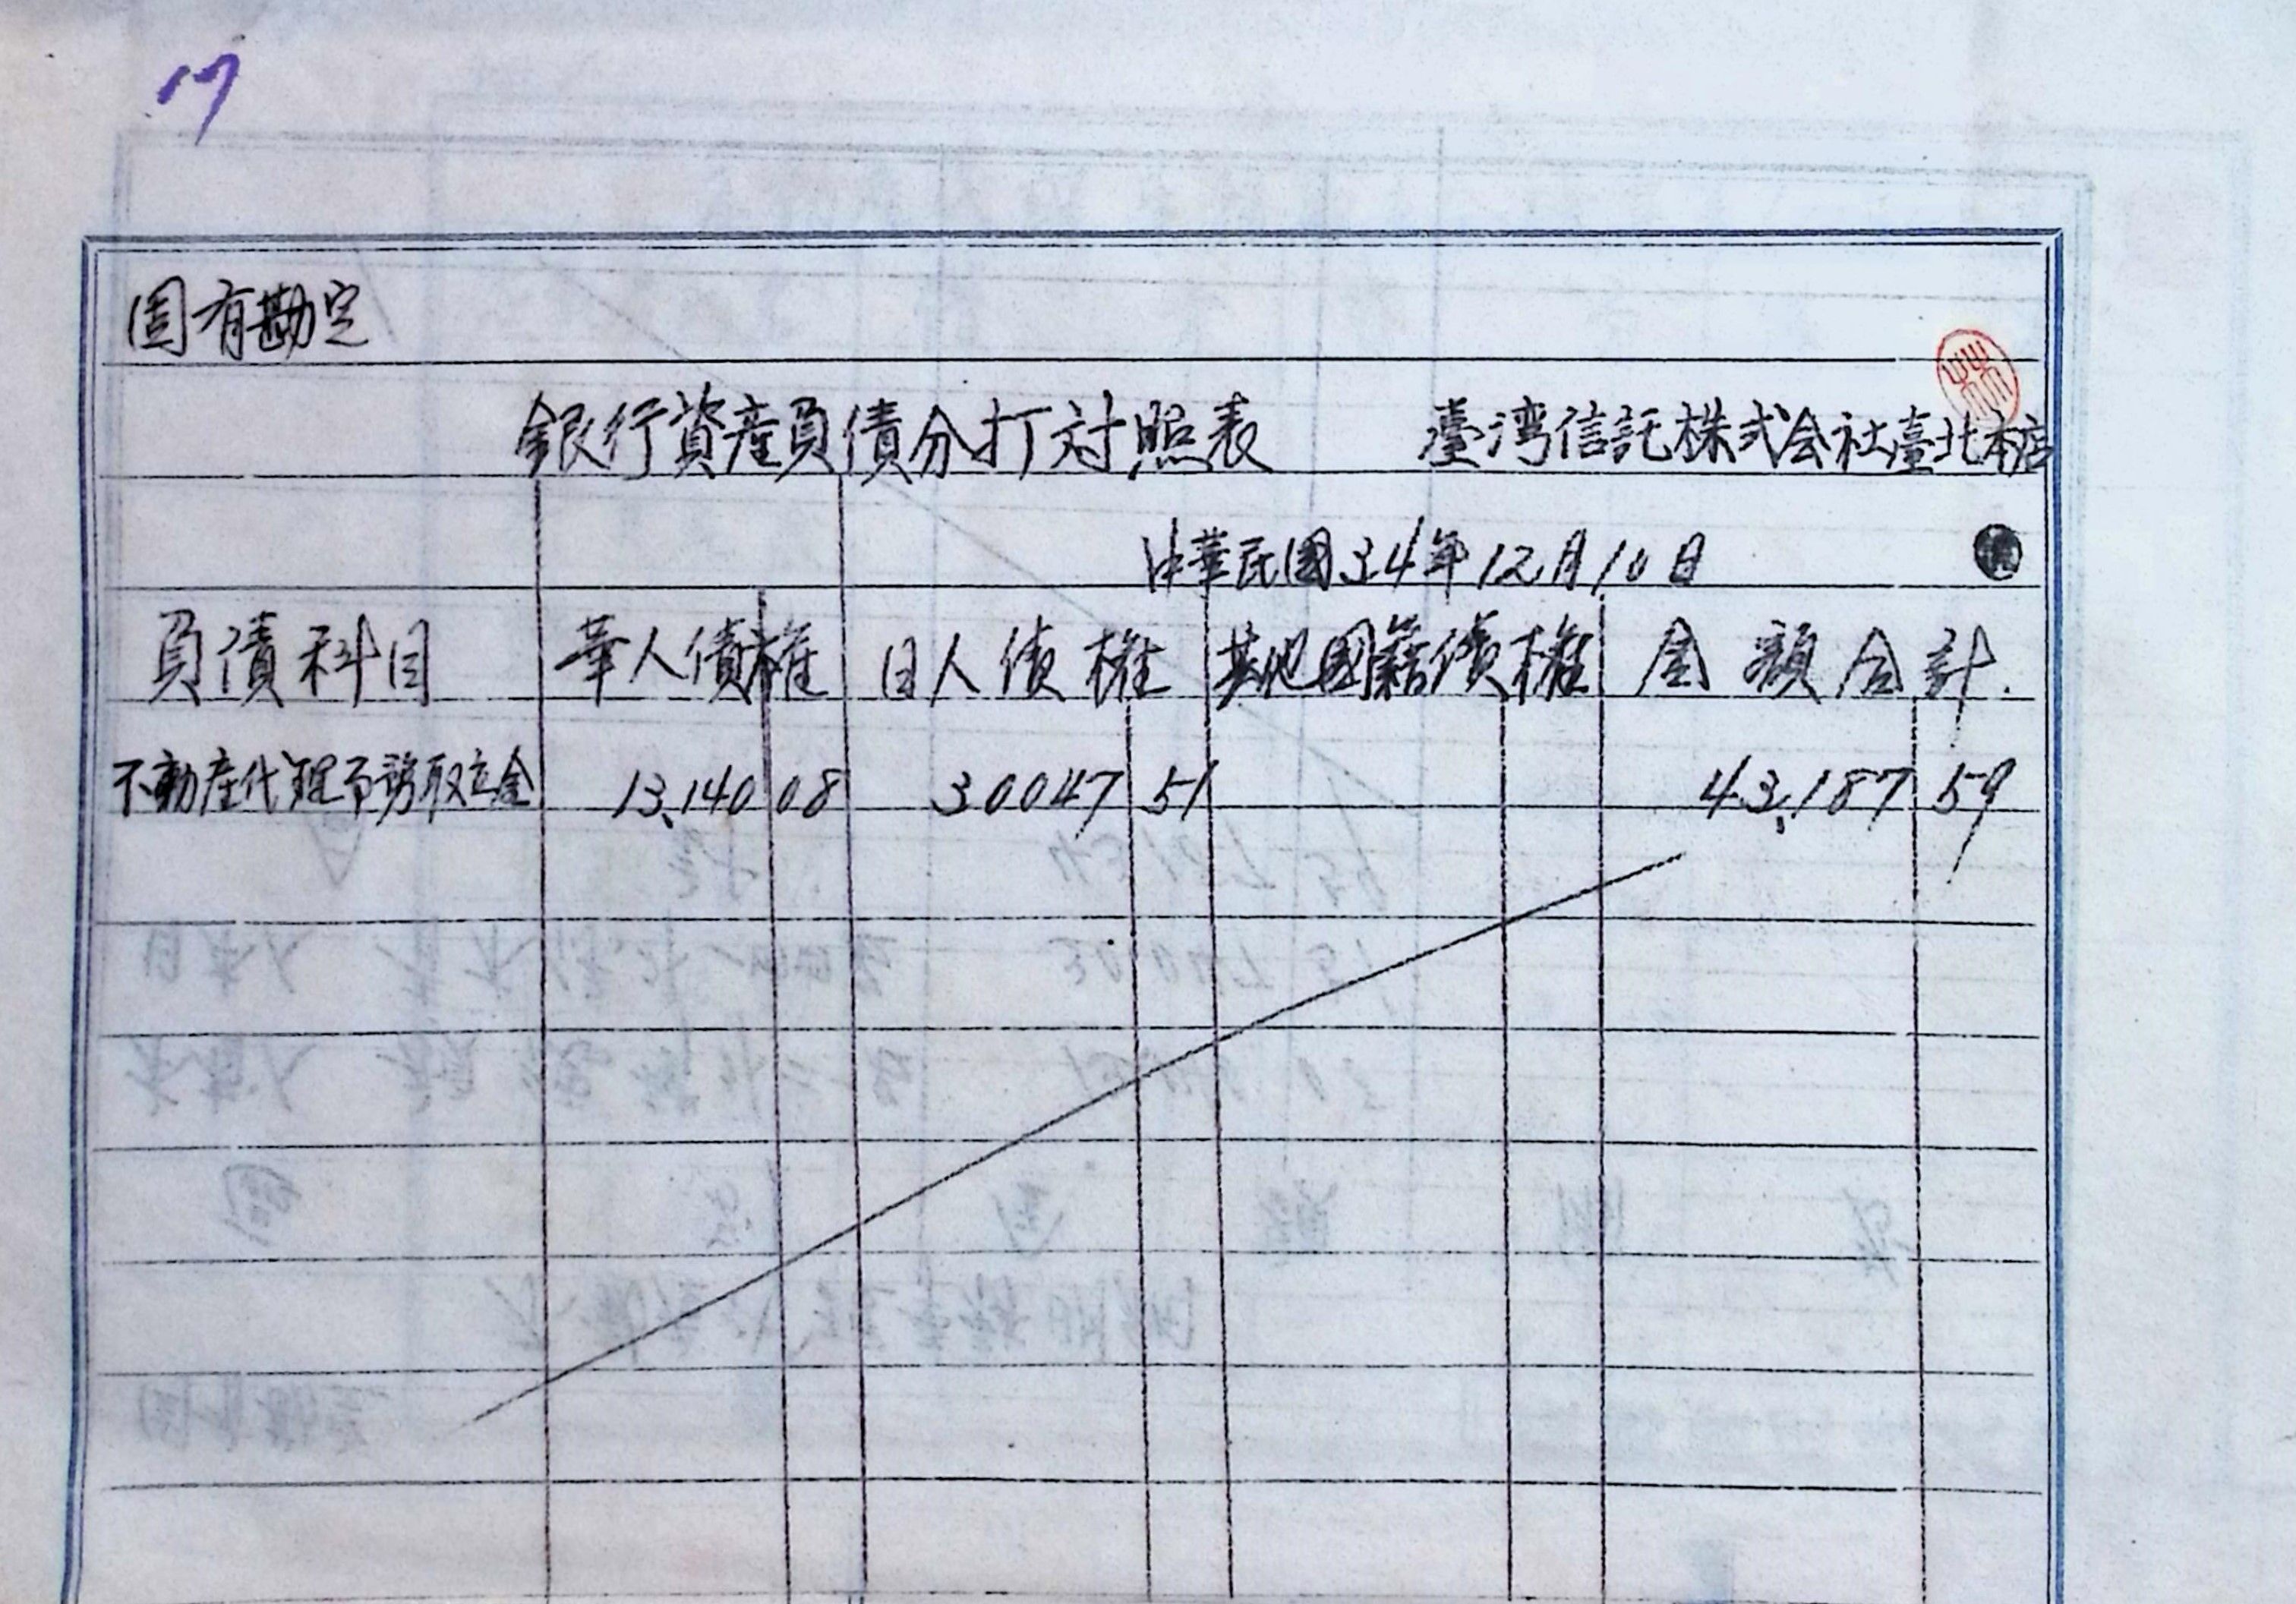 17
固有勘定
銀行資産負債分打対照表 臺湾信託株式会社臺北本店
中華民國34年12月10日
負債科目 華人債権 日人債権 其他国籍債権 金額合計
不動産代理事務取立金 13,140 08 30047 51 43,187 59